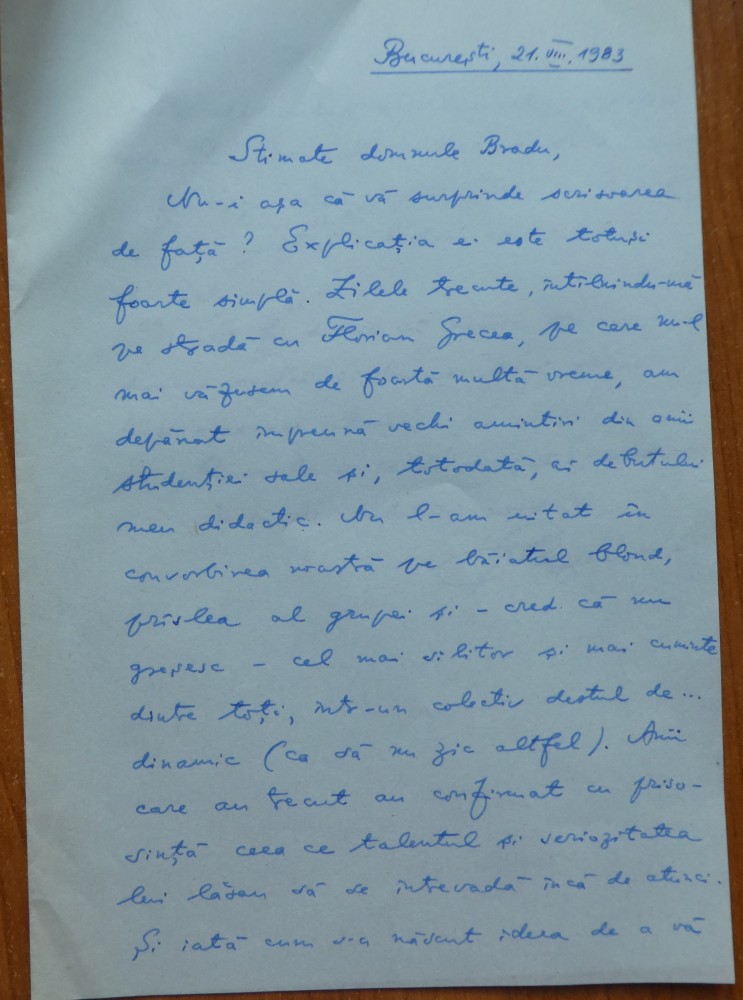 București, 21.VIII.1983
Stimate domnule Bradu,
Nu-i așa că vă surprinde scrisoarea
de față? Explicația ei este totuși
foarte simplă. Zilele trecute, întîlnindu-mă
pe stradă cu Florian Grecea, pe care nu-l
mai văzusem de foartă multă vreme, am
depănat împreună vechi amintiri din anii
studenției sale și, totodată, ai debutului
meu didactic. Nu l-am uitat în
convorbirea noastră pe băiatul blond,
prîslea al grupei și - cred că nu
greșesc - cel mai silitor și mai cuminte
dintre toți, într-un colectiv destul de...
dinamic (ca să nu zic altfel). Anii
care au trecut au confirmat cu priso-
sință ceea ce talentul și seriozitatea
lui lăsau să se întrevadă încă de atunci.
Și iată cum s-a născut ideea de a vă